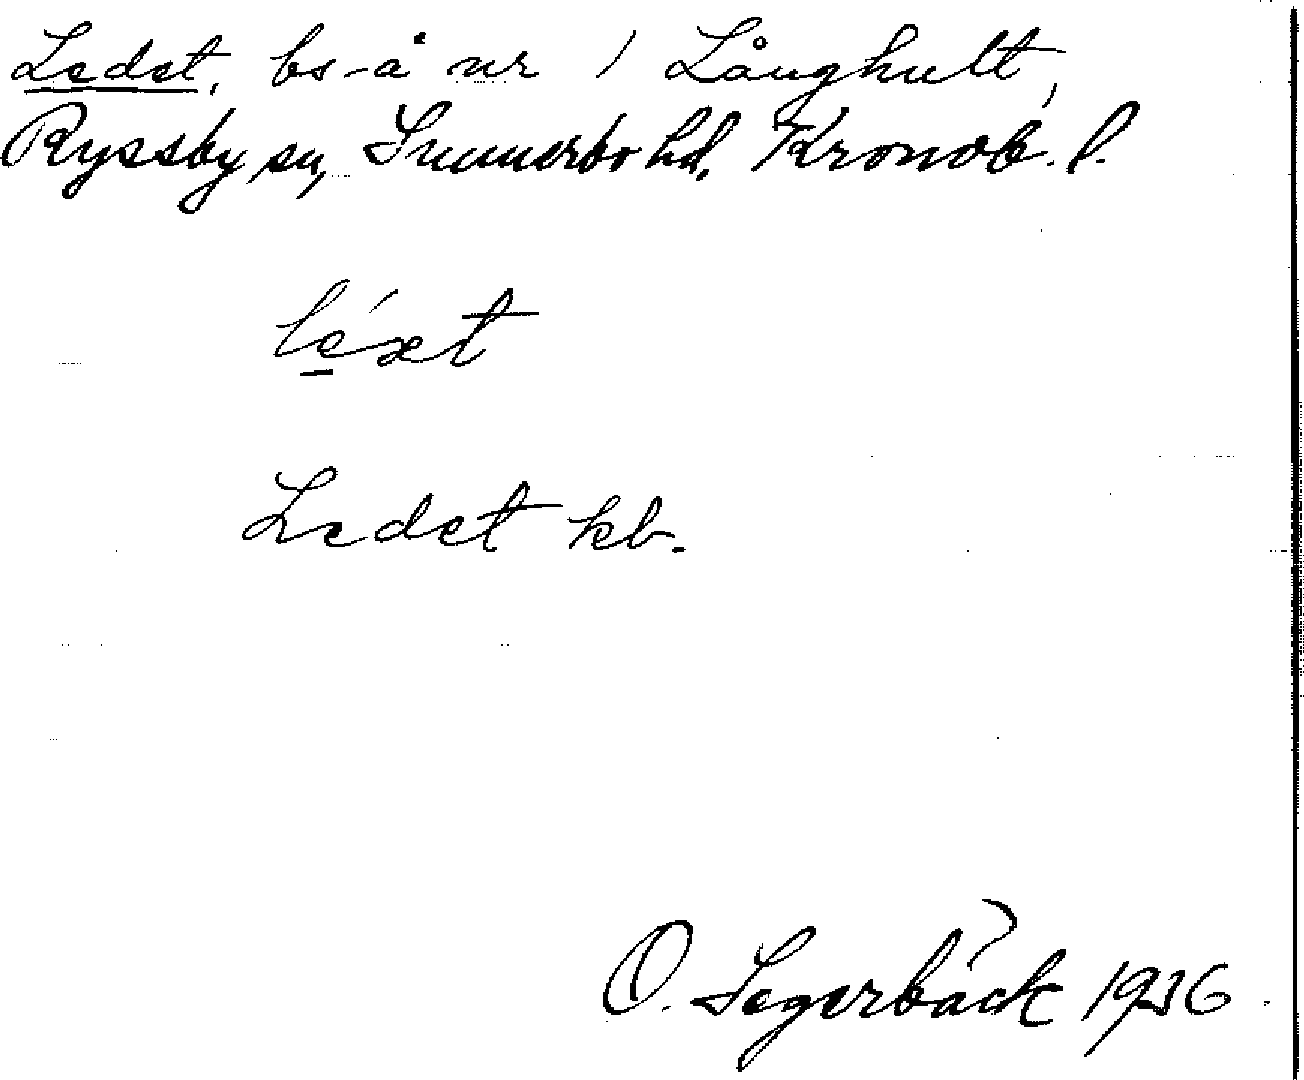 Ledet, bs-å nr 1 Långhult,
Ryssby sn, Sunnerbo hd, Kronob. l.
léæt
Ledet kb.
O. Segerbäck 1936